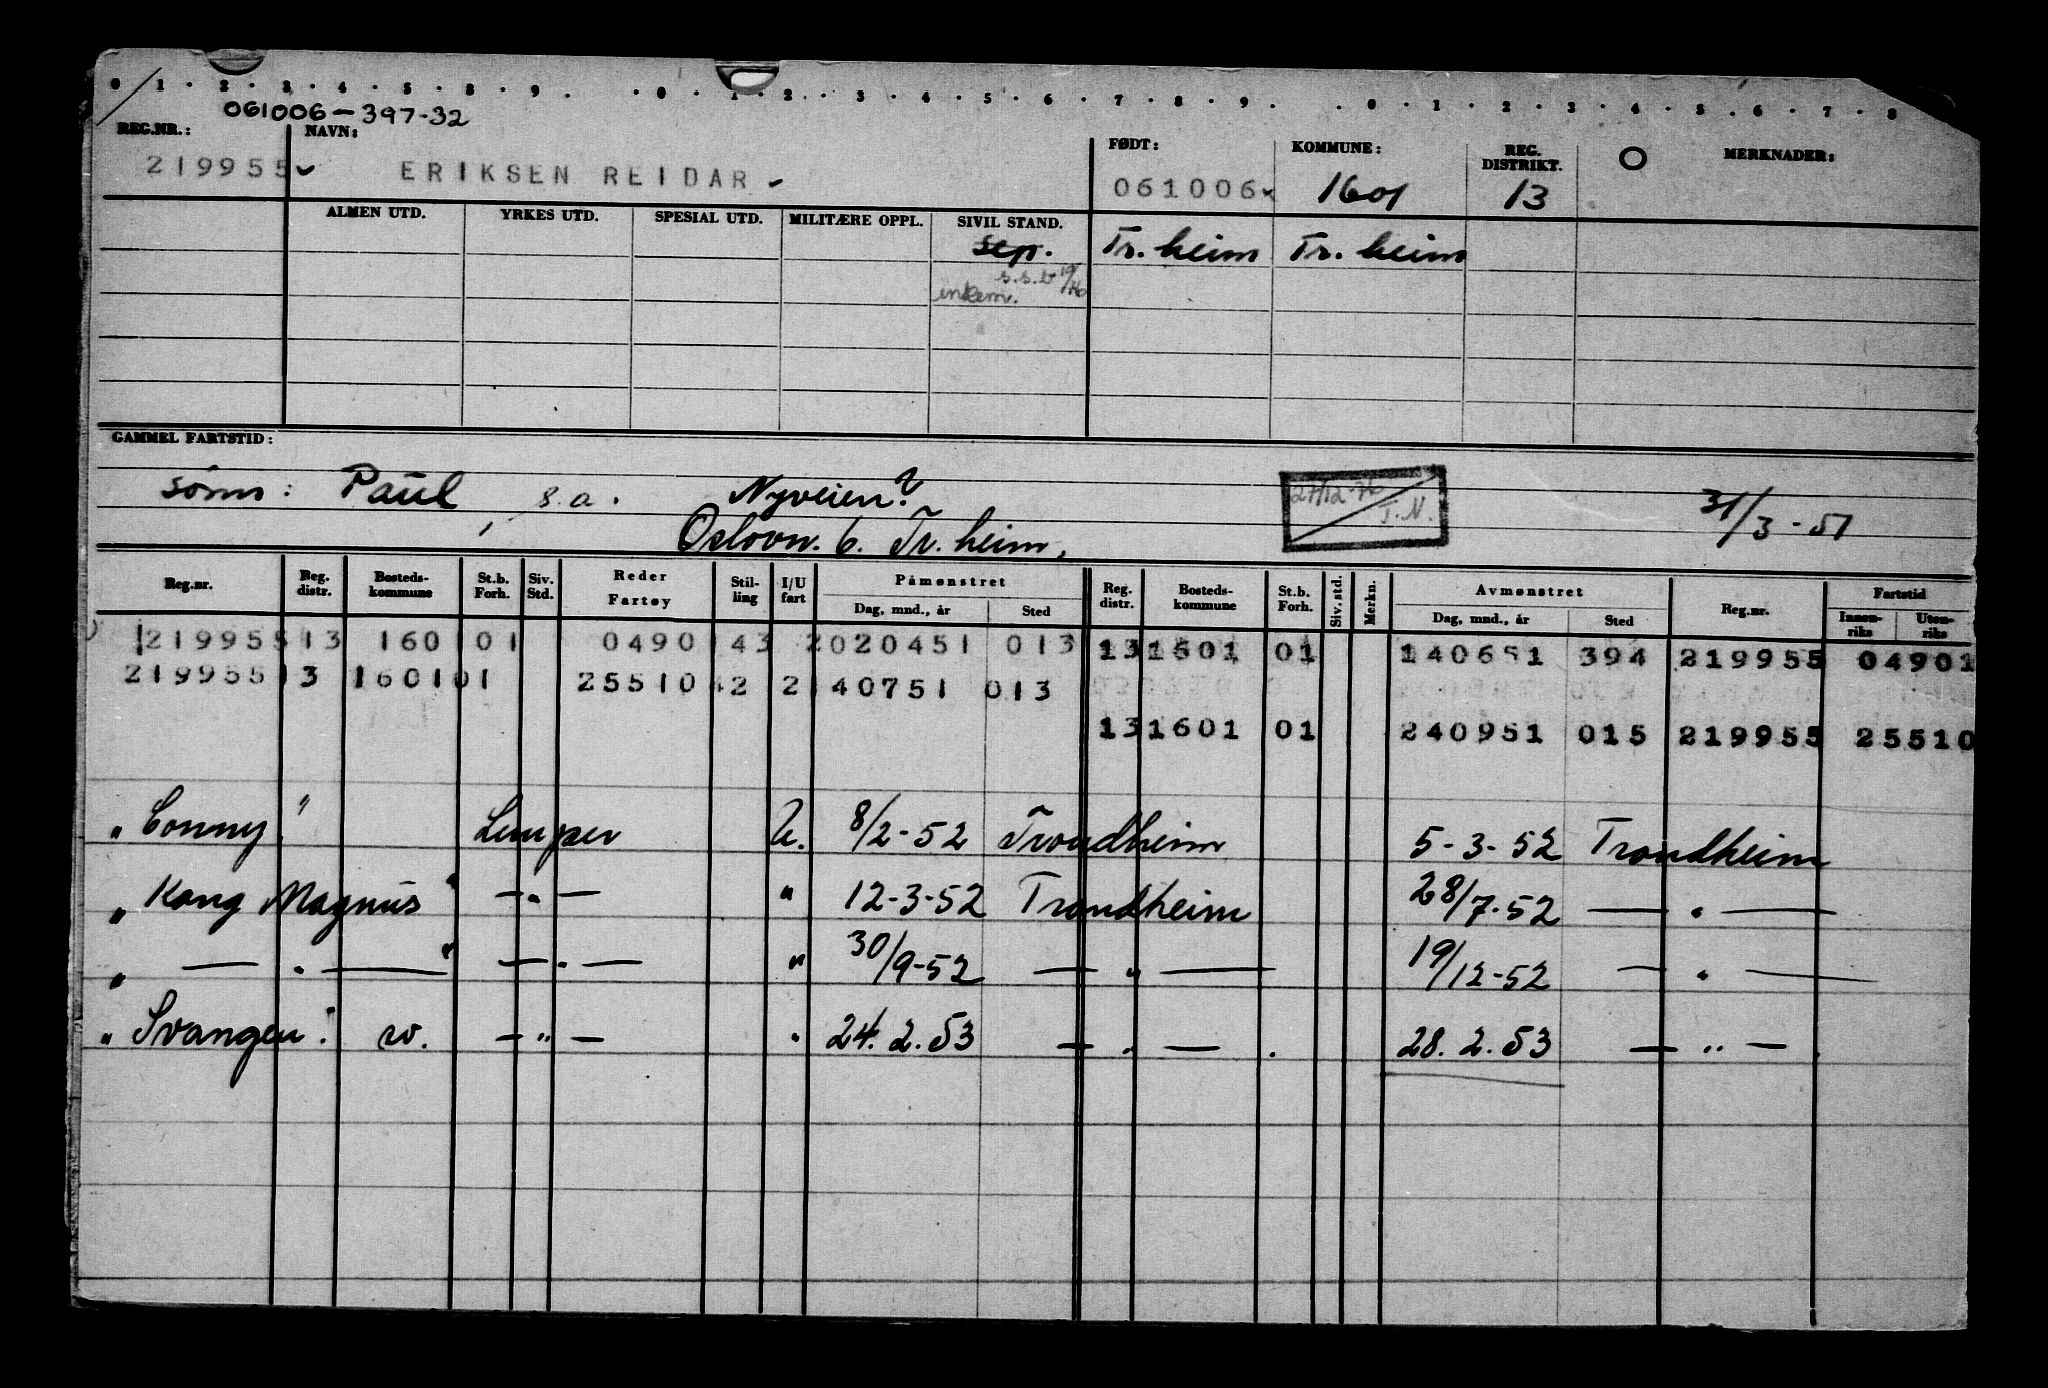 0 1 2 3 4 5 8 9 0 1 2 3 4 5 6 7 8 9 0 1 2 3 4 5 6 7 8
061006-397-32
REG.NR.: NAVN: FØDT: KOMMUNE: REG. DISTRIKT. O MERKNADER:
219955 ERIKSEN REIDAR 061006 1601 13
ALMEN UTD. YRKES UTD. SPESIAL UTD. MILITÆRE OPPL. SIVIL STAND.
sep. Tr.heim Tr.heim
s.s.b 19/
enkem.
GAMMEL FARTSTID:
sønn: Paul s.a. Nyveien? 31/3-51
Oslovn. 6. Tr.heim.
Reg.nr. Reg. distr. Bosteds-kommune St.b. Forh. Siv. Std. Reder Fartøy Stil-ling I/U fart Påmønstret Dag, mnd., år Sted Reg. distr. Bosteds-kommune St.b. Forh. Siv. std. Merkn. Avmønstret Dag, mnd., år Sted Reg.nr. Fartstid Innen-riks Uten-riks
219955 13 1601 01 0490 143 2 020451 013 13 1601 01 140651 394 219955 04901
219955 13 1601 01 25510 42 2 140751 013
13 1601 01 240951 015 219955 25510
"Conny" Lemper U. 8/2-52 Trondheim 5-3-52 Trondheim
"Kong Magnus" —"— " 12-3-52 Trondheim 28/7-52 —"—
"—"—" —"— " 30/9-52 —"— 19/12-52 —"—
"Svangen". —"— " 24.2.53 —"—. 28.2.53 —"—.